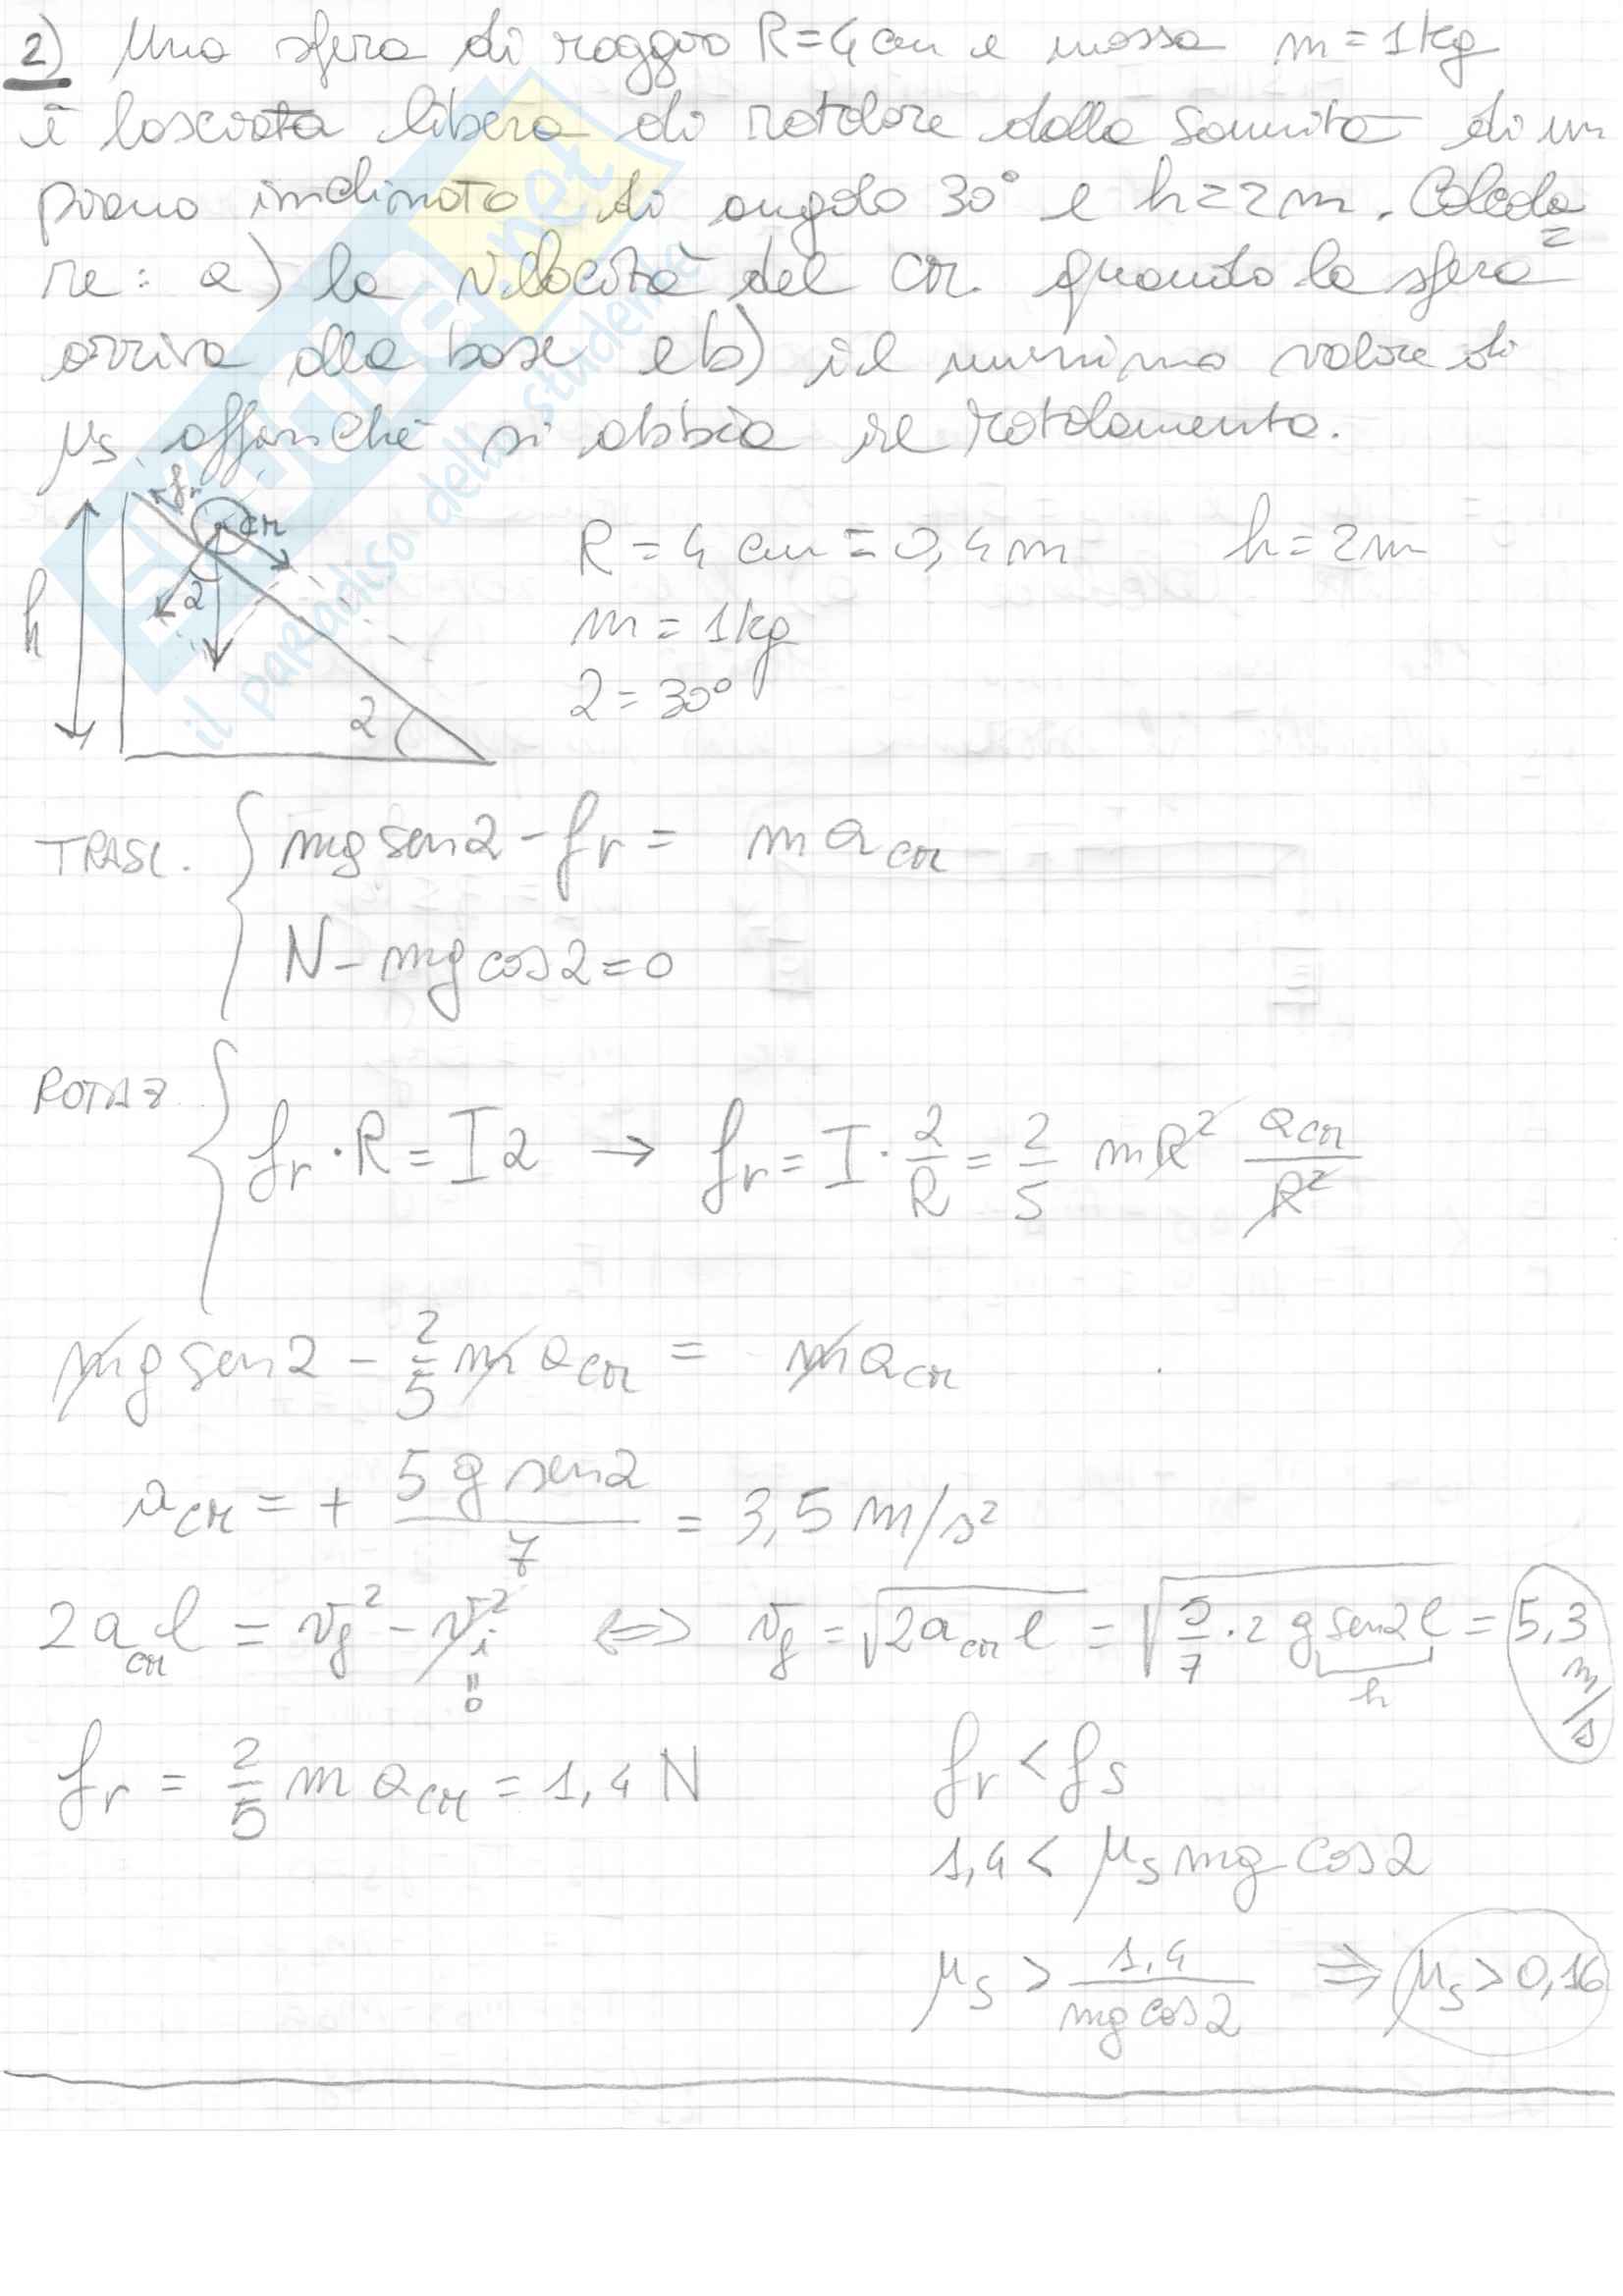 2) Una sfera di raggio R=4cm e massa m=1kg
è lasciata libera di rotolare dalla sommità di un
piano inclinato di angolo 30° e h=2m. Calcola=
re: a) la velocità del CM quando la sfera
arriva alla base e b) il minimo valore di
μs affinché si abbia il rotolamento.
fr
CM
h
α
α
R = 4 cm = 0,4 m h = 2 m
m = 1 kg
α = 30°
TRASL. { mg sen α - fr = m a_CM
N - mg cos α = 0
ROTAZ. { fr · R = I α → fr = I · α/R = 2/5 mR² a_CM/R²
mg sen α - 2/5 m a_CM = m a_CM
a_CM = + 5 g sen α / 7 = 3,5 m/s²
2 a_CM l = v_f² - v_i² ⇔ v_f = √(2 a_CM l) = √(5/7 · 2 g sen α l) = 5,3 m/s
"
0
h
fr = 2/5 m a_CM = 1,4 N fr < fs
1,4 < μs mg cos α
μs > 1,4 / mg cos α ⇒ μs > 0,16
SKUOLA.net
il paradiso dello studente